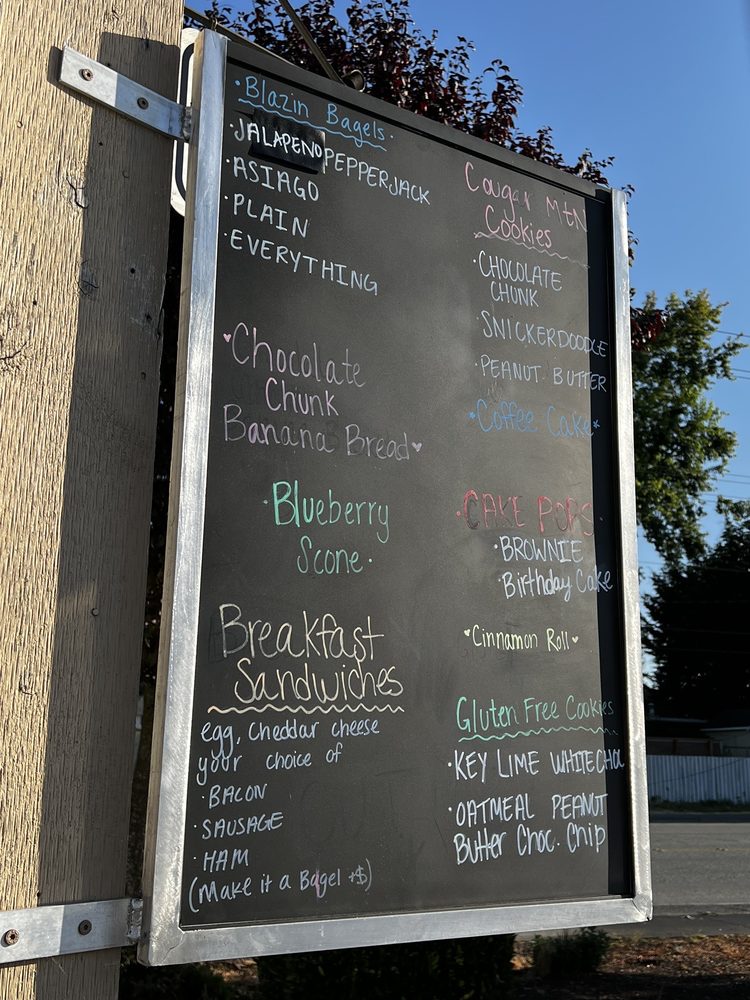 ·Blazin Bagels·
·JALAPENO PEPPERJACK
·ASIAGO
·PLAIN
·EVERYTHING
Chocolate
Chunk
Banana Bread
·Blueberry
Scone·
Breakfast
Sandwiches
egg, cheddar cheese
your choice of
·BACON
·SAUSAGE
·HAM
(Make it a Bagel +$)
Cougar Mtn
Cookies
·CHOCOLATE
CHUNK
·SNICKERDOODLE
·PEANUT BUTTER
*Coffee Cake*
·CAKE POPS·
·BROWNIE
·Birthday Cake
Cinnamon Roll
Gluten Free Cookies
·KEY LIME WHITE CHOC
·OATMEAL PEANUT
Butter Choc. Chip